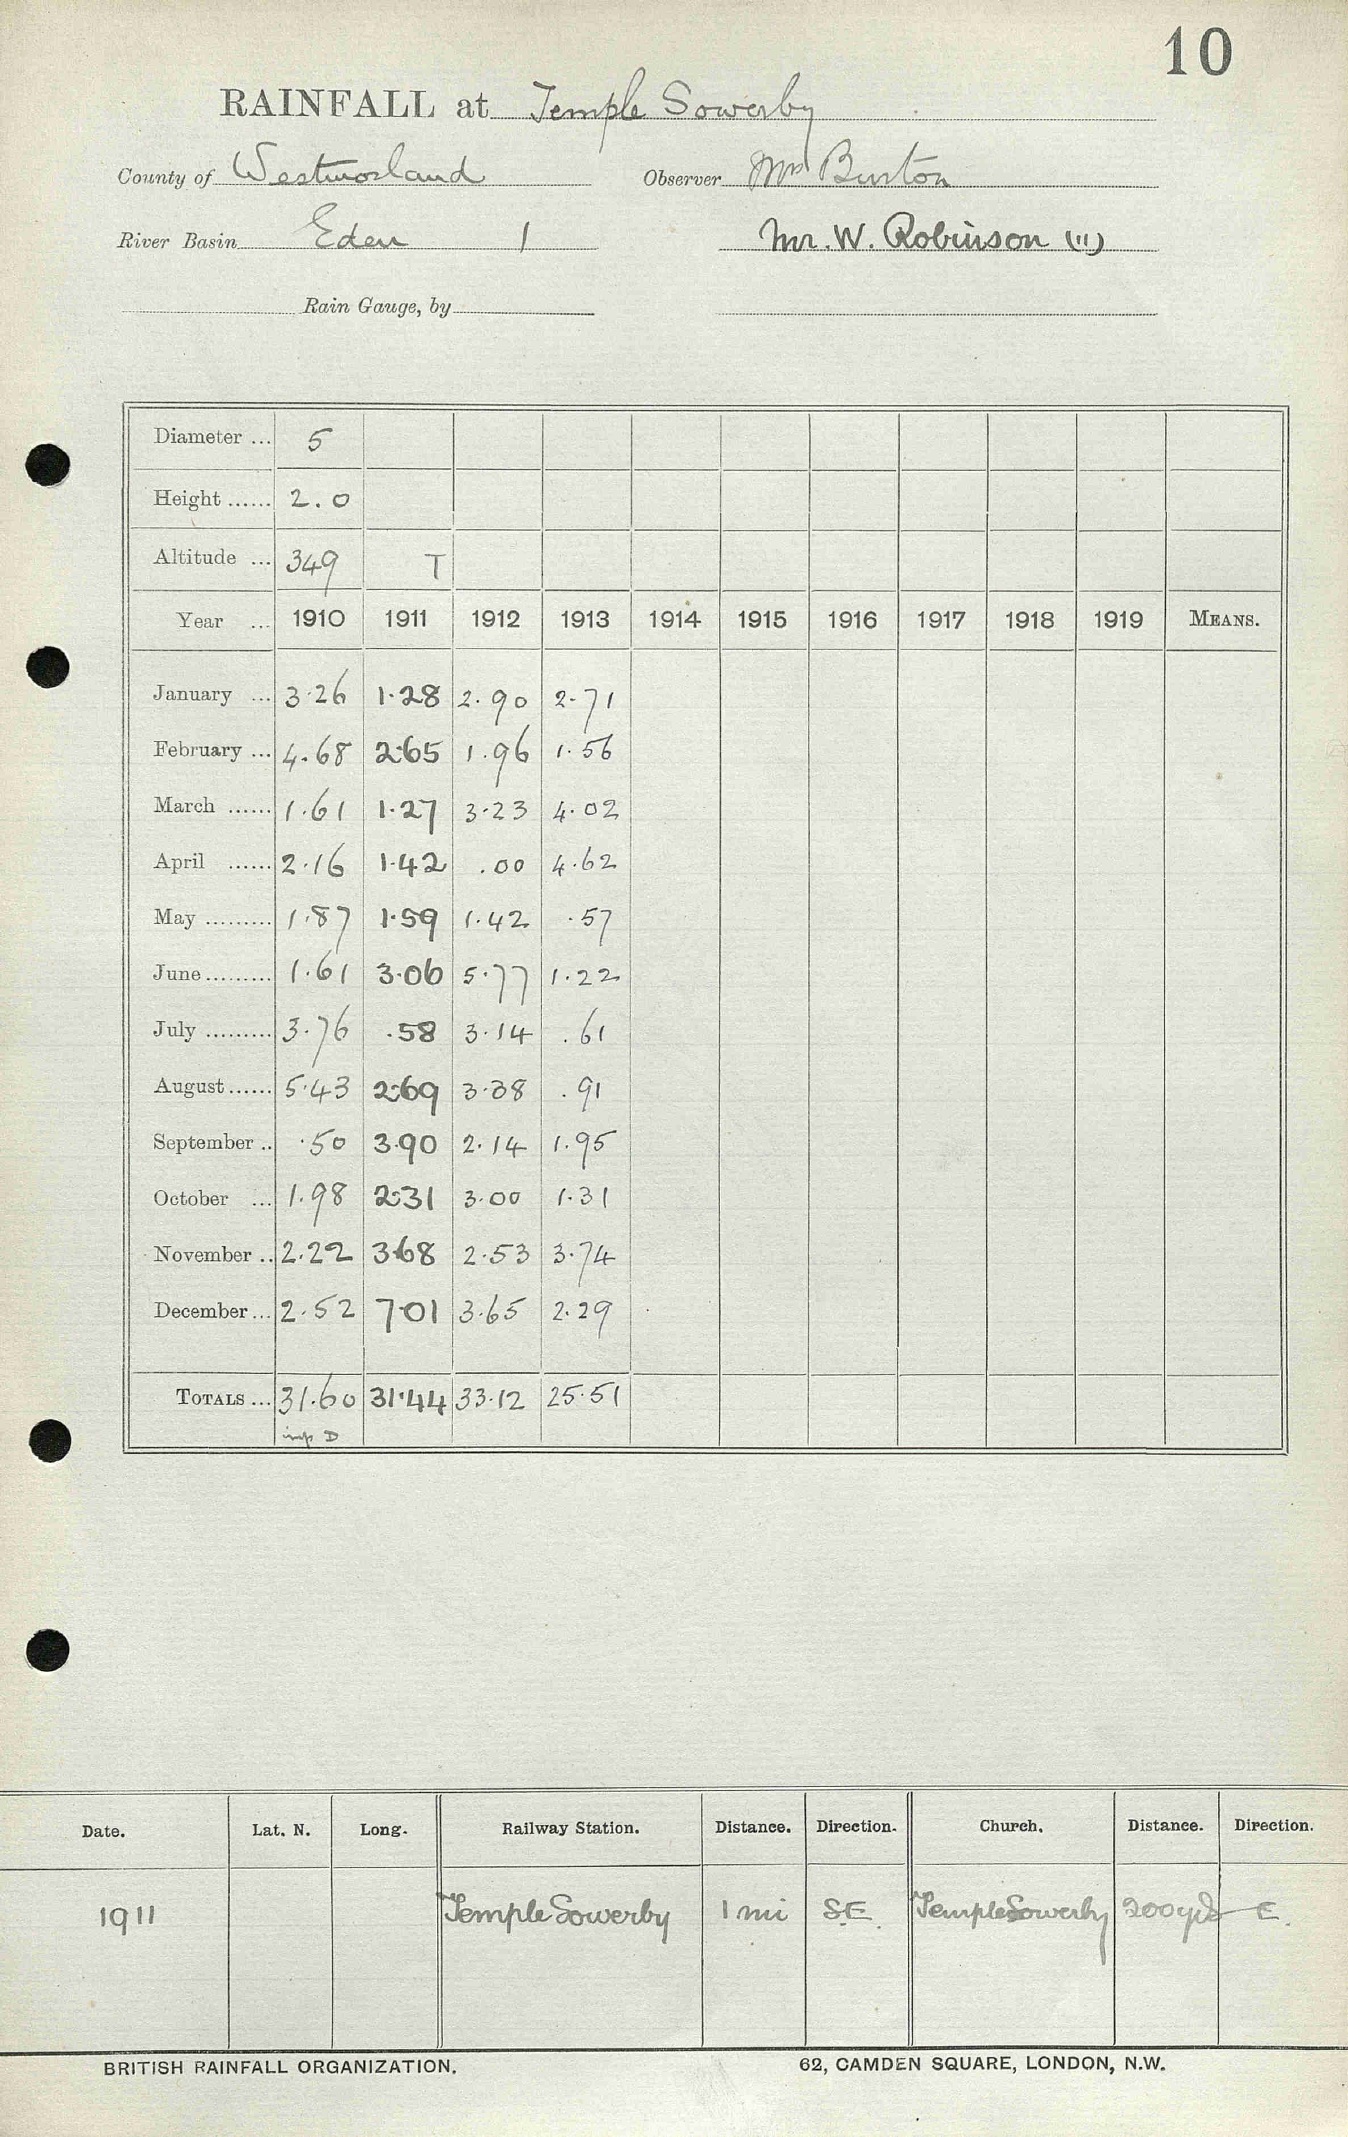 10
RAINFALL at Temple Sowerby
County of Westmorland Observer Mrs Burton
River Basin Eden 1 Mr. W. Robinson ("11)
Rain Gauge, by
Diameter ... 5
Height ...... 2.0
Altitude ... 349 T
Year ... 1910 1911 1912 1913 1914 1915 1916 1917 1918 1919 MEANS.
January ... 3.26 1.28 2.90 2.71
February ... 4.68 2.65 1.96 1.56
March ...... 1.61 1.27 3.23 4.02
April ...... 2.16 1.42 .00 4.62
May ......... 1.87 1.59 1.42 .57
June ......... 1.61 3.06 5.77 1.22
July ......... 3.76 .58 3.14 .61
August ...... 5.43 2.69 3.38 .91
September .. .50 3.90 2.14 1.95
October ... 1.98 2.31 3.00 1.31
November .. 2.22 3.68 2.53 3.74
December ... 2.52 7.01 3.65 2.29
TOTALS ... 31.60 31.44 33.12 25.51
imp D
Date. Lat. N. Long. Railway Station. Distance. Direction. Church. Distance. Direction.
1911 Temple Sowerby 1 mi S.E. Temple Sowerby 200 yds E.
BRITISH RAINFALL ORGANIZATION. 62, CAMDEN SQUARE, LONDON, N.W.